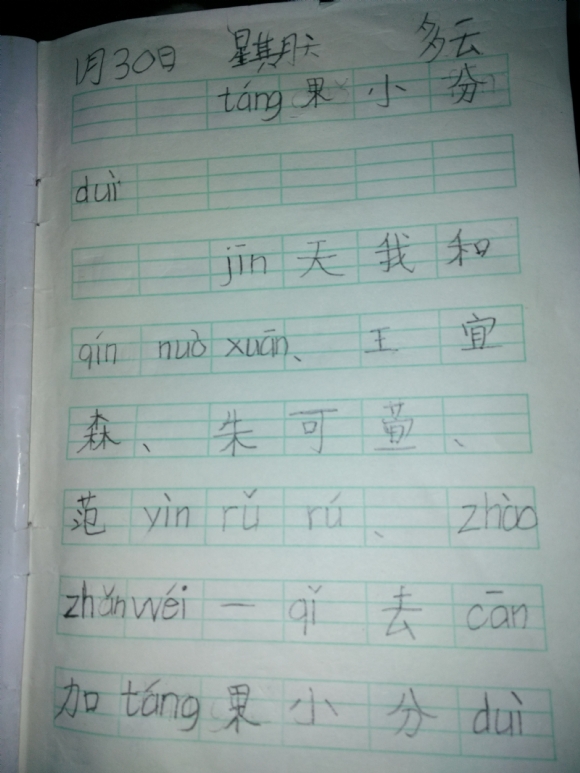 1月30日 星期天 多云
táng果小分
duì
jīn天我和
qín nuò xuān、王宜
森、朱可萱、
范yìn rǔ rú、zhào
zhǎn wéi一qǐ去cān
加táng果小分duì